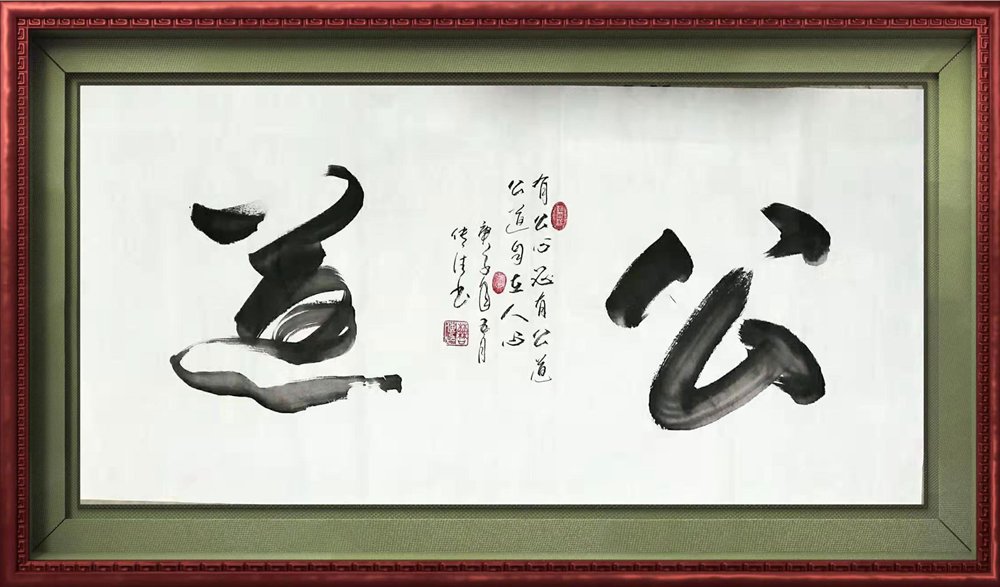 公道
有公心必有公道
公道自在人心
庚子年五月
传佳书